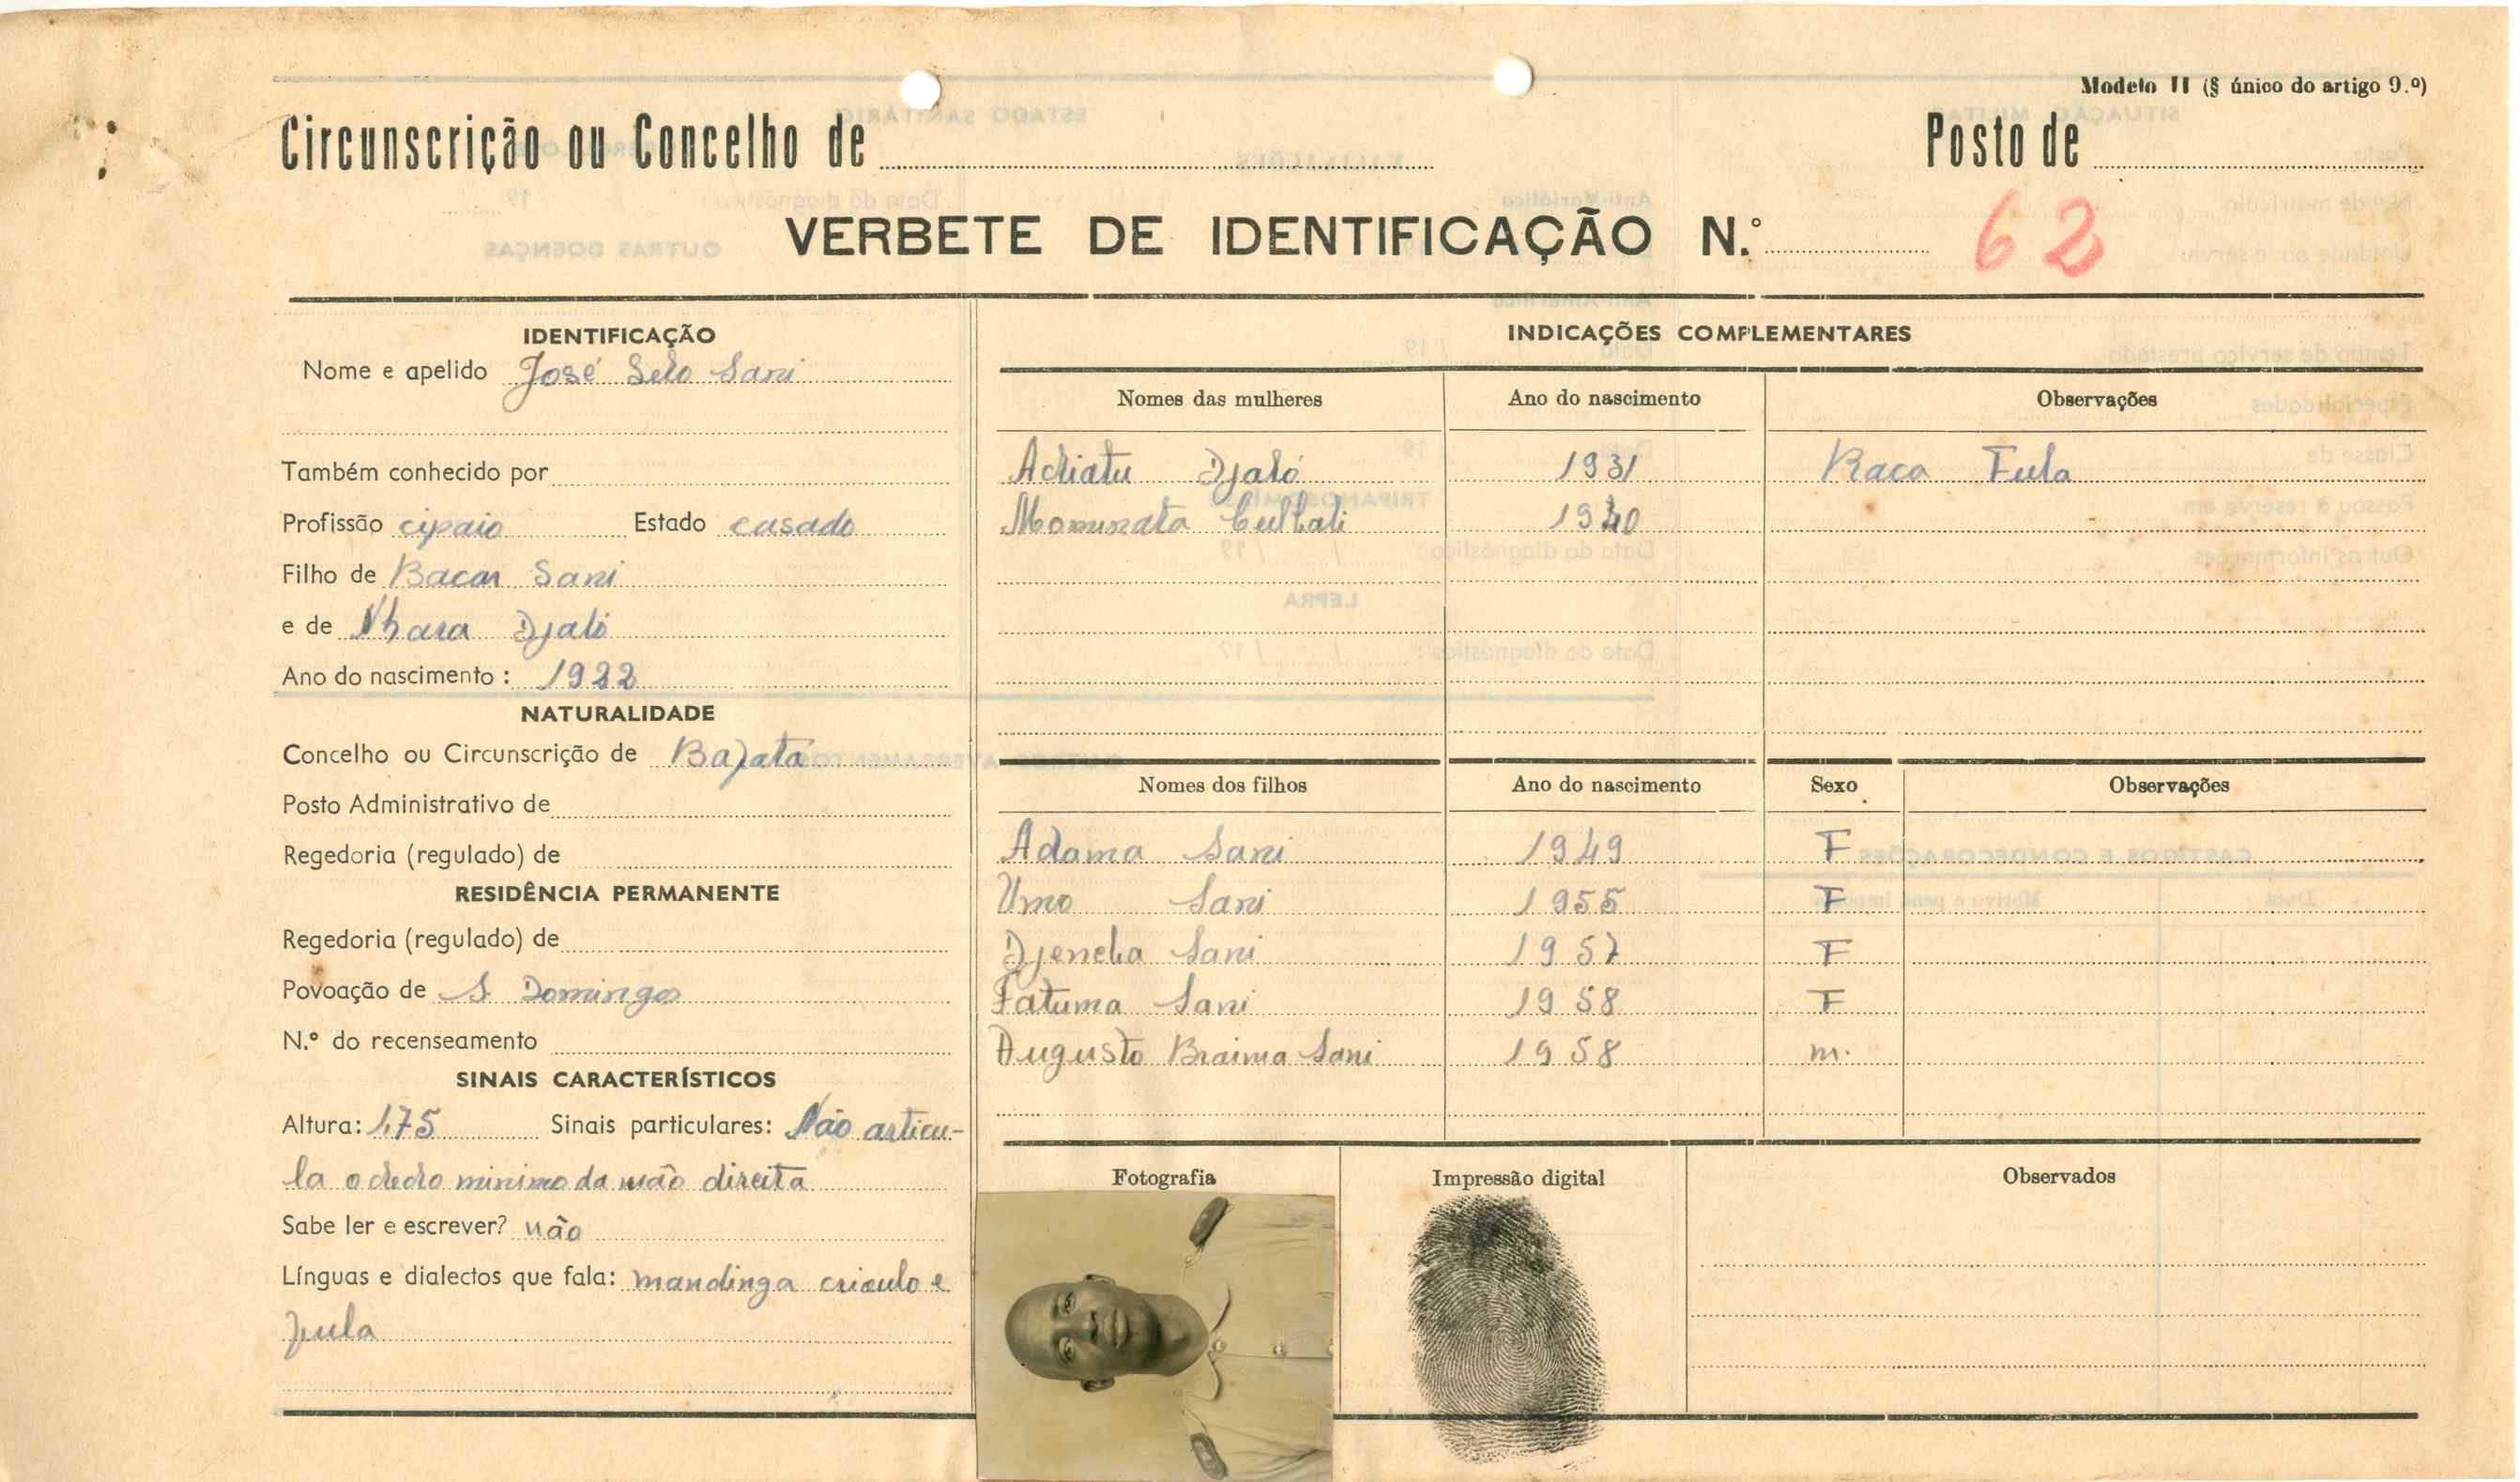 Modelo II (§ único do artigo 9.º)
Circunscrição ou Concelho de
Posto de
VERBETE DE IDENTIFICAÇÃO N.º 62
IDENTIFICAÇÃO
Nome e apelido José Selo Sani
Também conhecido por
Profissão cipaio Estado casado
Filho de Bacar Sani
e de Nhara Djaló
Ano do nascimento: 1922
NATURALIDADE
Concelho ou Circunscrição de Bafatá
Posto Administrativo de
Regedoria (regulado) de
RESIDÊNCIA PERMANENTE
Regedoria (regulado) de
Povoação de S. Domingos
N.º do recenseamento
SINAIS CARACTERÍSTICOS
Altura: 1,75 Sinais particulares: Não articu-
la o dedo minimo da mão direita
Sabe ler e escrever? não
Línguas e dialectos que fala: mandinga crioulo e
fula
INDICAÇÕES COMPLEMENTARES
Nomes das mulheres Ano do nascimento Observações
Adiatu Djaló 1931 Raca Fula
1940
Nomes dos filhos Ano do nascimento Sexo Observações
Adama Sani 1949 F
Umo Sani 1955 F
Djeneba Sani 1957 F
Fatuma Sani 1958 F
Augusto Braima Sani 1958 m.
Fotografia Impressão digital Observados